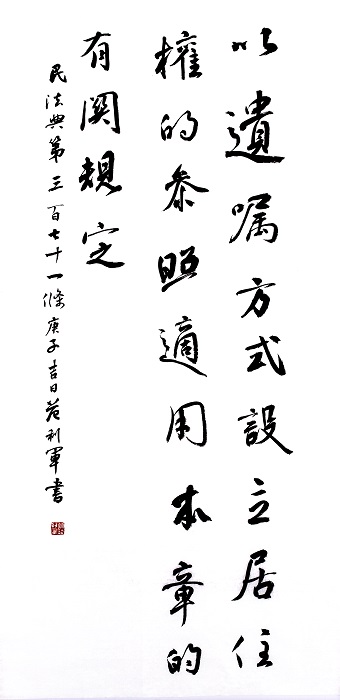 以遺嘱方式設立居住
權的参照適用本章的
有関規定
民法典第三百七十一條庚子吉日利軍書